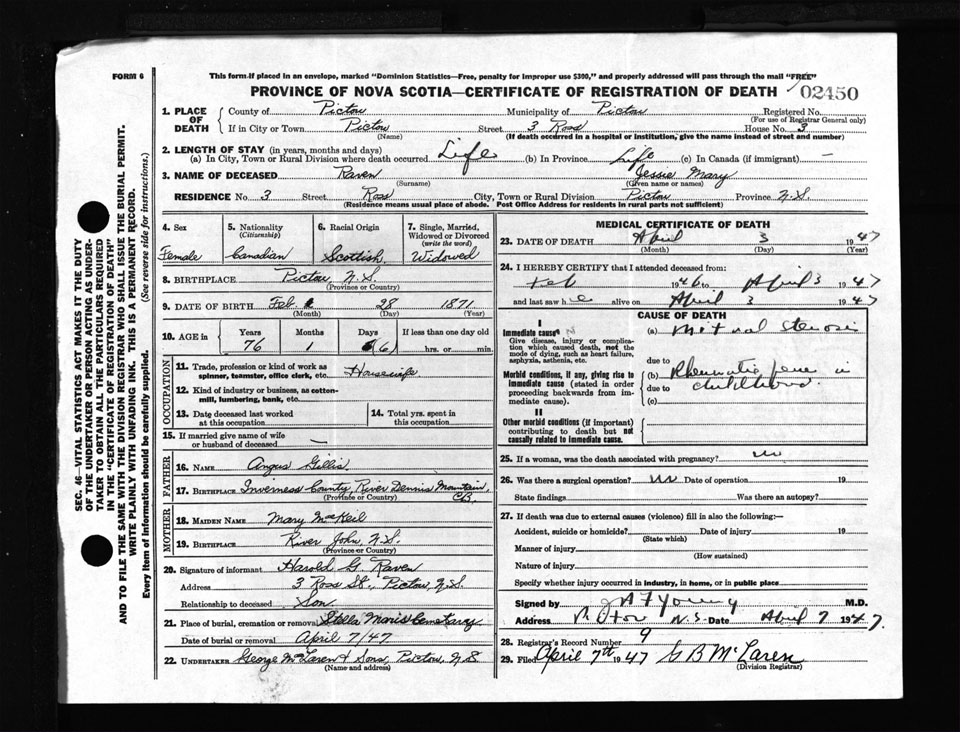 FORM 6
This form if placed in an envelope, marked "Dominion Statistics—Free, penalty for improper use $300," and properly addressed will pass through the mail "FREE"
PROVINCE OF NOVA SCOTIA—CERTIFICATE OF REGISTRATION OF DEATH
02450
1. PLACE OF DEATH
County of Pictou Municipality of Pictou Registered No.
(For use of Registrar General only)
If in City or Town Pictou Street 3 Ross House No. 3
(Name) (If death occurred in a hospital or institution, give the name instead of street and number)
2. LENGTH OF STAY (in years, months and days)
(a) In City, Town or Rural Division where death occurred Life (b) In Province Life (c) In Canada (if immigrant) —
3. NAME OF DECEASED Raven Jessie Mary
(Surname) (Given name or names)
RESIDENCE No. 3 Street Ross City, Town or Rural Division Pictou Province N.S.
(Residence means usual place of abode. Post Office Address for residents in rural parts not sufficient)
4. Sex 5. Nationality 6. Racial Origin 7. Single, Married, Widowed or Divorced
(Citizenship) (write the word)
Female Canadian Scottish Widowed
8. BIRTHPLACE Pictou N.S.
(Province or Country)
9. DATE OF BIRTH Feb. 28 1871
(Month) (Day) (Year)
10. AGE in Years Months Days If less than one day old
76 1 (6) hrs. or min.
OCCUPATION
11. Trade, profession or kind of work as spinner, teamster, office clerk, etc. Housewife
12. Kind of industry or business, as cotton-mill, lumbering, bank, etc.
13. Date deceased last worked at this occupation 14. Total yrs. spent in this occupation
15. If married give name of wife or husband of deceased —
FATHER
16. NAME Angus Gillis
17. BIRTHPLACE Inverness County, River Dennis Mountain, C.B.
(Province or Country)
MOTHER
18. MAIDEN NAME Mary McKeil
19. BIRTHPLACE River John, N.S.
(Province or Country)
20. Signature of informant Harold G. Raven
Address 3 Ross St., Pictou, N.S.
Relationship to deceased Son
21. Place of burial, cremation or removal Stella Maris Cemetary
Date of burial or removal April 7/47
22. UNDERTAKER George McLaren & Sons, Pictou, N.S
(Name and address)
MEDICAL CERTIFICATE OF DEATH
23. DATE OF DEATH April 3 1947
(Month) (Day) (Year)
24. I HEREBY CERTIFY that I attended deceased from:
Feb 1946 to April 3 1947
and last saw h e alive on April 3 1947
CAUSE OF DEATH
I
Immediate cause (a) Mitral Stenosis
Give disease, injury or complication which caused death, not the mode of dying, such as heart failure, asphyxia, asthenia, etc.
due to
Morbid conditions, if any, giving rise to immediate cause (stated in order proceeding backwards from immediate cause).
(b) Rheumatic fever in
due to childhood.
(c)
II
Other morbid conditions (if important) contributing to death but not causally related to immediate cause.
25. If a woman, was the death associated with pregnancy? no
26. Was there a surgical operation? no Date of operation 19
State findings Was there an autopsy?
27. If death was due to external causes (violence) fill in also the following:—
Accident, suicide or homicide? Date of injury 19
(State which)
Manner of injury
(How sustained)
Nature of injury
Specify whether injury occurred in industry, in home, or in public place
Signed by Young M.D.
Address Pictou N.S. Date April 7 1947.
28. Registrar's Record Number 9
29. Filed April 7th 1947 G B McLaren
(Division Registrar)
SEC. 46—VITAL STATISTICS ACT MAKES IT THE DUTY
OF THE UNDERTAKER OR PERSON ACTING AS UNDER-
TAKER TO OBTAIN ALL THE PARTICULARS REQUIRED
IN THE "CERTIFICATE OF REGISTRATION OF DEATH"
AND TO FILE THE SAME WITH THE DIVISION REGISTRAR WHO SHALL ISSUE THE BURIAL PERMIT.
WRITE PLAINLY WITH UNFADING INK. THIS IS A PERMANENT RECORD.
Every item of information should be carefully supplied. (See reverse side for instructions.)